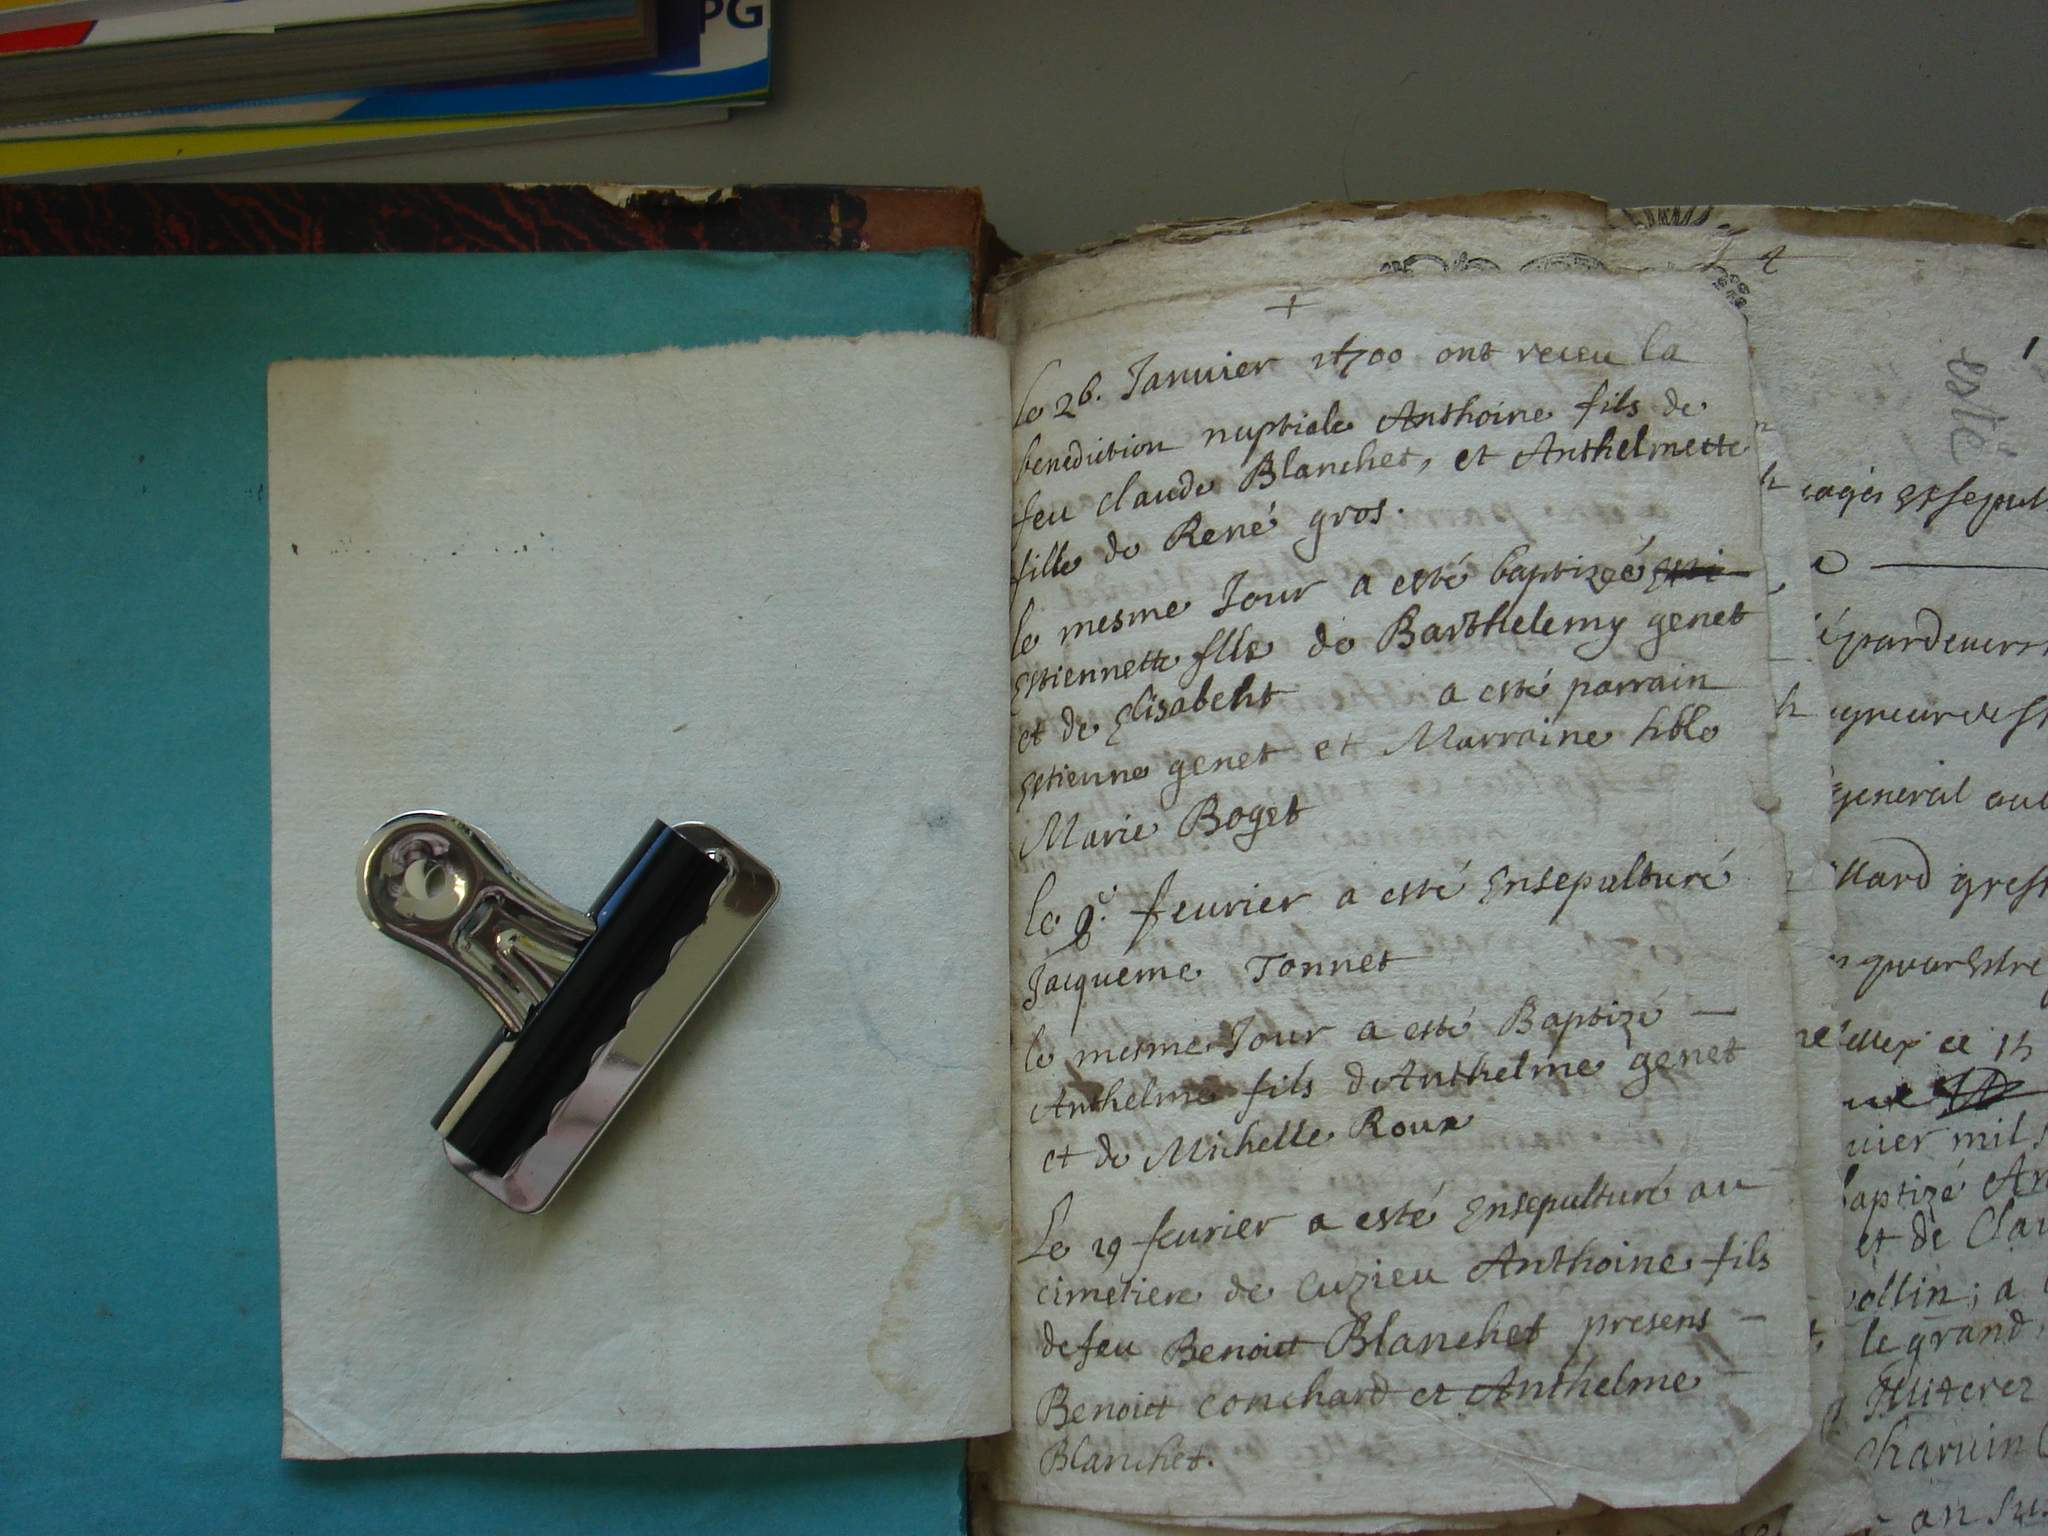 PG
+
le 26. Januier 1700 ont receu la
benediction nuptiale Anthoine fils de
feu claude Blanchet, et Anthelmette
fille de René gros.
le mesme Jour a esté baptizéé
Estiennette fille de Barthelemy genet
et de Elisabeht a esté parrain
Estienne genet et Marraine hble
Marie Boget
le 8e. feurier a esté Ensepulturé
Jacqueme Tonnet
le mesme Jour a esté Baptizé —
Anthelme fils dAnthelme genet
et de Michelle Roux
Le 19 feurier a esté Ensepulturé au
cimetiere de Cuzieu Anthoine fils
de feu Benoict Blanchet presens —
Benoict conchard et Anthelme
Blanchet.
pardeuers
general
ce 15
uier mil
baptizé An
et de Clau
ollin; a
le grand,
an